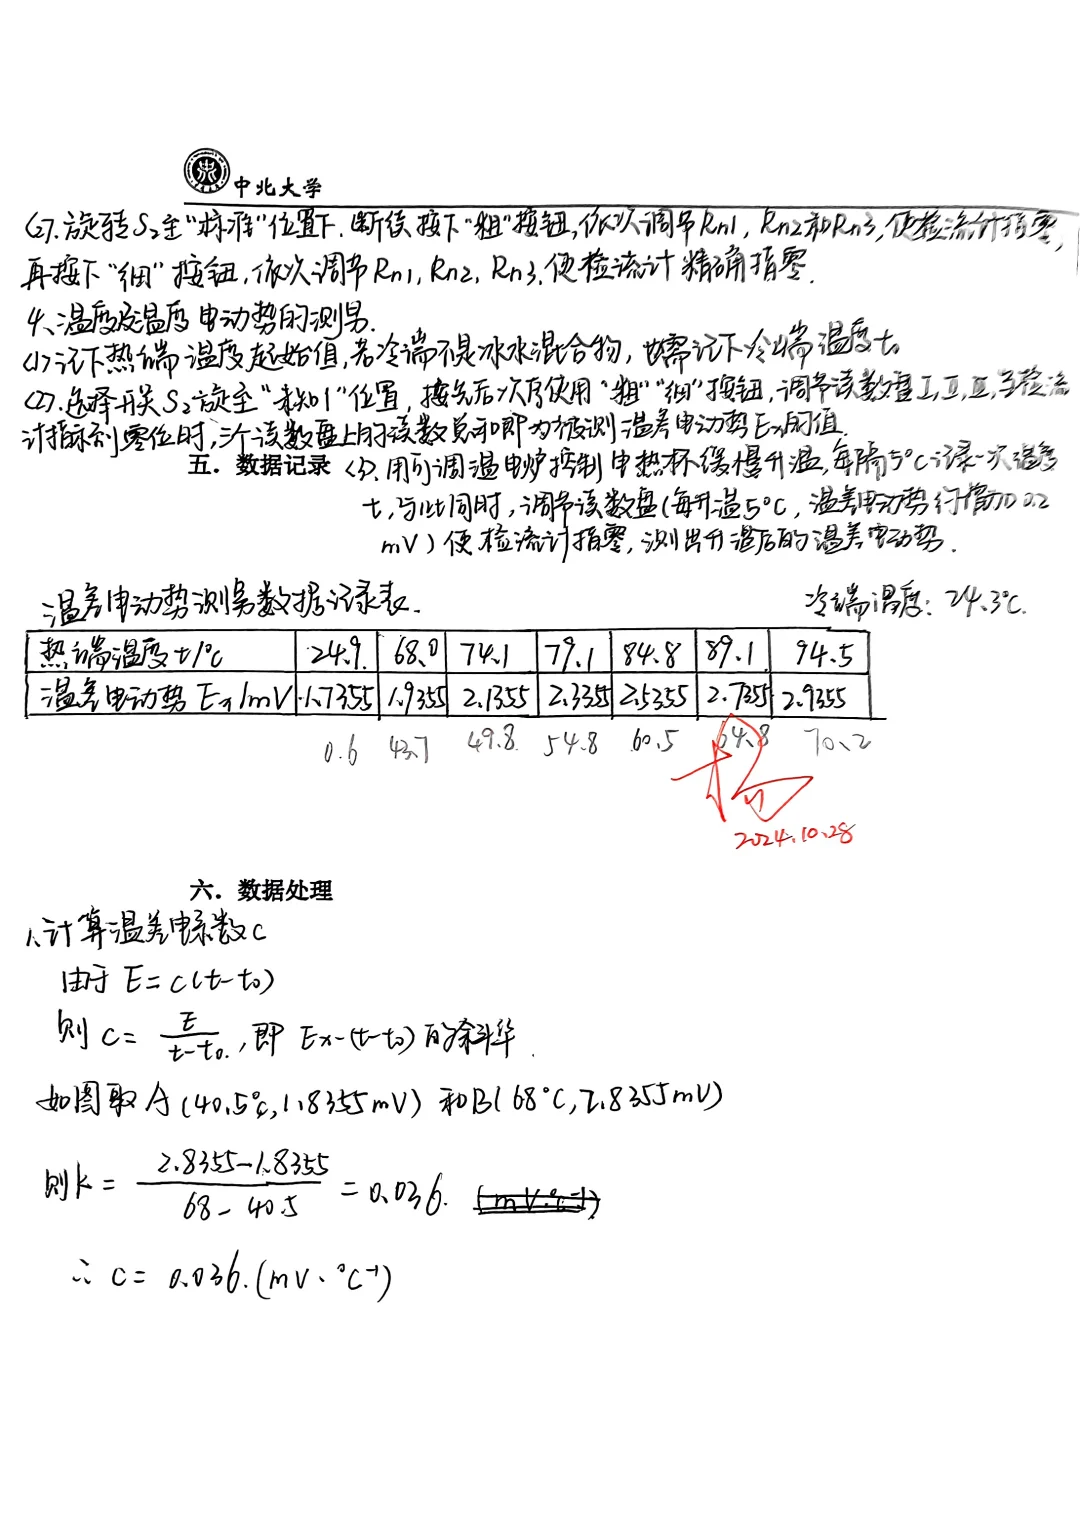 中北大学
(2).旋转S₂至"标准"位置下.断续按下"粗"按钮,依次调节Rn1,Rn2和Rn3,使检流计指零,
再按下"细"按钮,依次调节Rn1,Rn2,Rn3,使检流计精确指零.
4、温度及温度电动势的测易.
(1)记下热端温度起始值,若冷端不是冰水混合物,也需记下冷端温度t₀
(2).选择开关S₂旋至"未知1"位置,按先后次序使用"粗""细"按钮,调节读数盘Ⅰ,Ⅱ,Ⅲ,当检流
计指示到零位时,三个读数盘上的读数总和即为被测温差电动势Ex的值.
五．数据记录 (3).用可调温电炉控制电热杯缓慢升温,每隔5°C记录一次温度
t,与此同时,调节读数盘(每升温5°C,温差电动势约增加0.2
mV)使检流计指零,测出升温后的温差电动势.
温差电动势测易数据记录表. 冷端温度: 24.3°C.
热端温度t/°C 24.9. 68.0 74.1 79.1 84.8 89.1 94.5
温差电动势Ex/mV 1.7355 1.9355 2.1355 2.3355 2.5355 2.7355 2.9355
0.6 43.7 49.8 54.8 60.5 64.8 70.2
杨
2024.10.28
六．数据处理
1、计算温差电系数c
由于 E=c(t-t₀)
则 c= E/t-t₀. ,即 Ex-(t-t₀)的斜率.
如图取A(40.5°C,1.8355mV)和B(68°C,2.8355mV)
则k= 2.8355-1.8355/68-40.5 =0.036. (mV·°C⁻¹)
∴ c= 0.036.(mV·°C⁻¹)